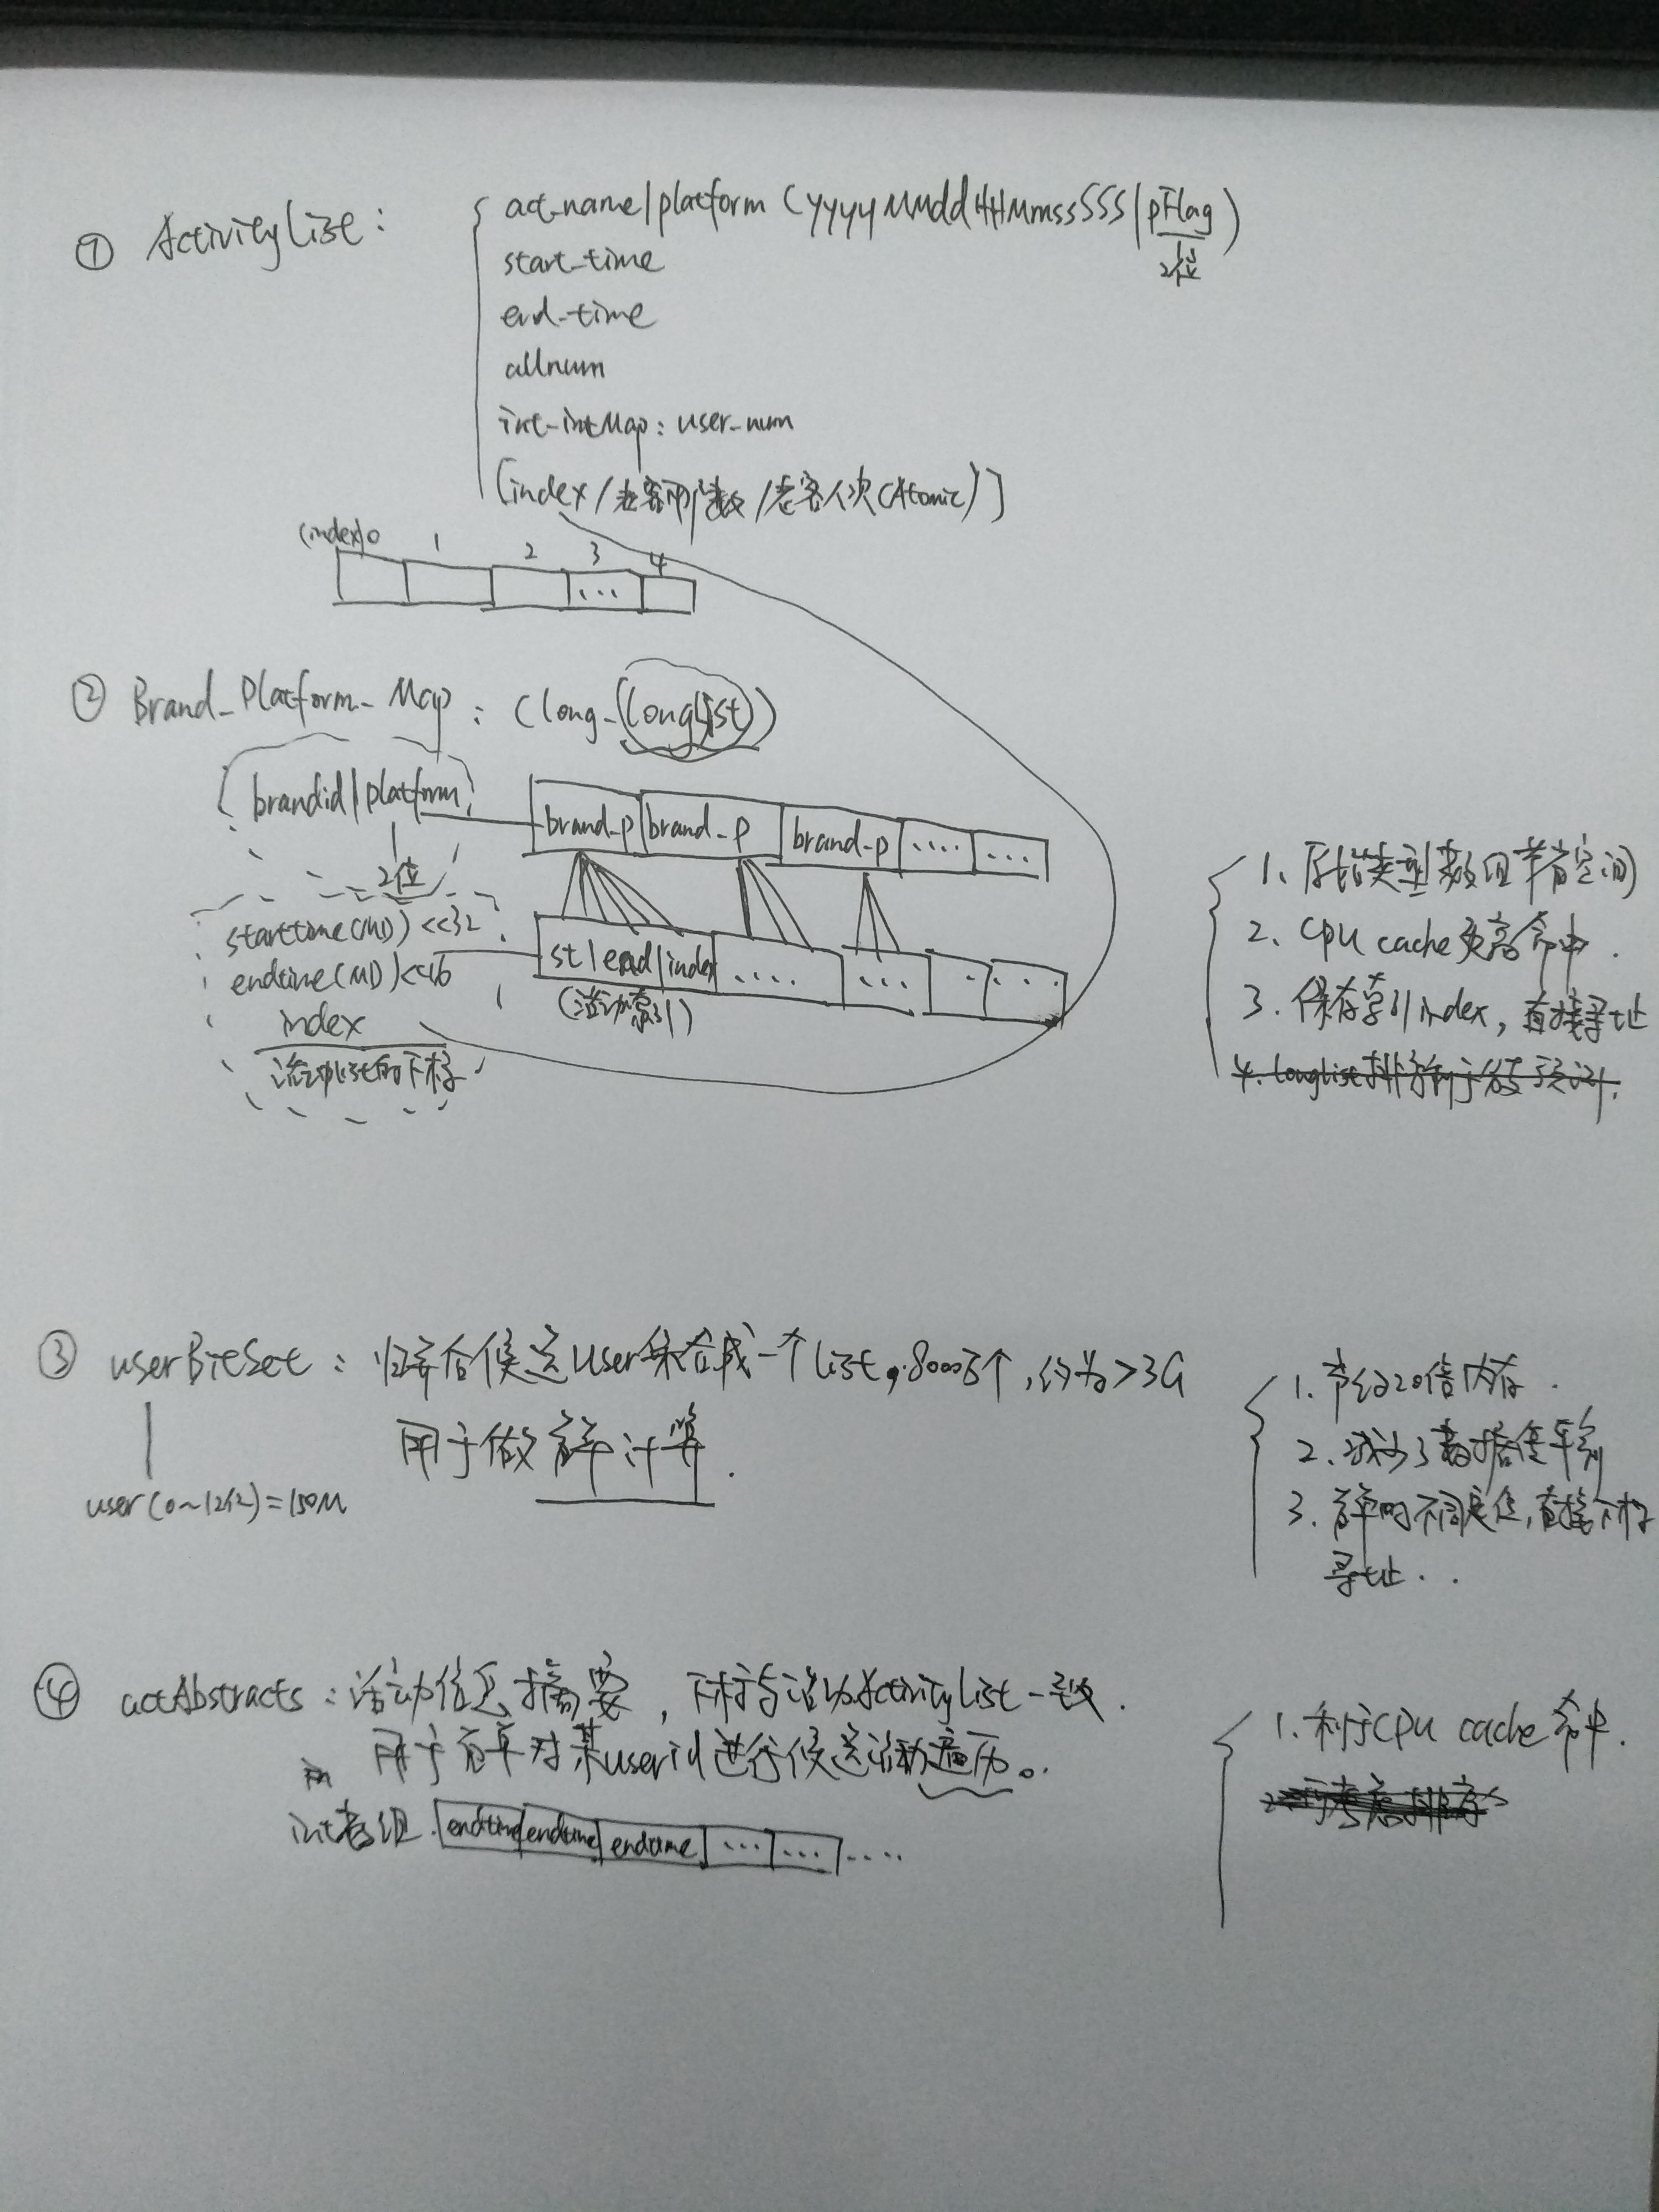 ① ActivityList:
act_name/platform (yyyyMMddHHMmssSSS|pFlag)
2位
start_time
end_time
allnum
int-intMap: user_num
[index/老客户数/老客人次(Atomic)]
(index)0 1 2 3 4
...
② Brand_Platform_Map: (long-(longlist))
brandid|platform
2位
brand_p brand_p brand_p .... ...
starttime(MD)<<32
endtime(MD)<<16
index
活动list的下标
st|end|index .... ... .. ...
(活动索引)
1、原始类型数组节省空间
2、cpu cache更高命中.
3. 保存索引index,直接寻址
4. longlist排序利于分支预测.
③ userBitSet: 候选user集合成一个list, 8000万个,约为>3G
用于做 计算.
user(0~12亿)=150M
1. 节约20倍内存.
2. 减少了数据倍
3. 时不同定位,直接下标
寻址..
④ actAbstracts:活动信息摘要,下标与活动ActivityList一致.
用于 对某userid进行候选活动遍历。
int数组. endtime endtime endtime ... ... ....
1. 利于cpu cache命中.